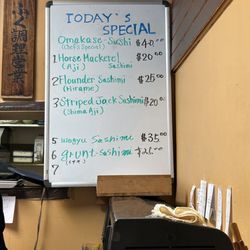 ふぐ調理営業
TODAY'S
SPECIAL
Omakase Sushi $40.00
(Chef's Special)
1 Horse Mackerel $20.00
(Aji) Sashimi
2 Flounder Sashimi $25.00
(Hirame)
3 Striped Jack Sashimi $20
(Shima Aji)
5 Wagyu Sashimi $35.00
6 grunt-Sashimi $25.00
7